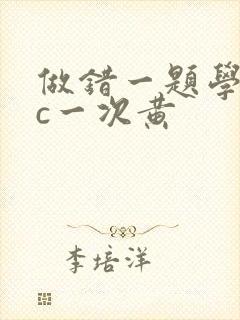 做錯一題學
c一次黄
李培洋